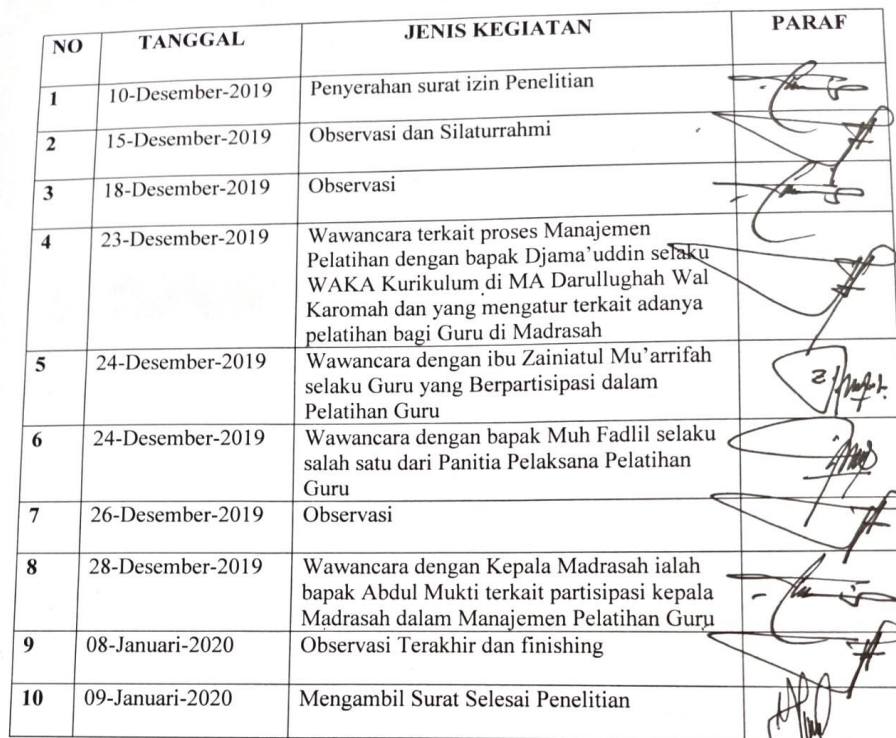 NO TANGGAL JENIS KEGIATAN PARAF
1 10-Desember-2019 Penyerahan surat izin Penelitian
2 15-Desember-2019 Observasi dan Silaturrahmi
3 18-Desember-2019 Observasi
4 23-Desember-2019 Wawancara terkait proses Manajemen
Pelatihan dengan bapak Djama'uddin selaku
WAKA Kurikulum di MA Darullughah Wal
Karomah dan yang mengatur terkait adanya
pelatihan bagi Guru di Madrasah
5 24-Desember-2019 Wawancara dengan ibu Zainiatul Mu'arrifah
selaku Guru yang Berpartisipasi dalam
Pelatihan Guru
6 24-Desember-2019 Wawancara dengan bapak Muh Fadlil selaku
salah satu dari Panitia Pelaksana Pelatihan
Guru
7 26-Desember-2019 Observasi
8 28-Desember-2019 Wawancara dengan Kepala Madrasah ialah
bapak Abdul Mukti terkait partisipasi kepala
Madrasah dalam Manajemen Pelatihan Guru
9 08-Januari-2020 Observasi Terakhir dan finishing
10 09-Januari-2020 Mengambil Surat Selesai Penelitian